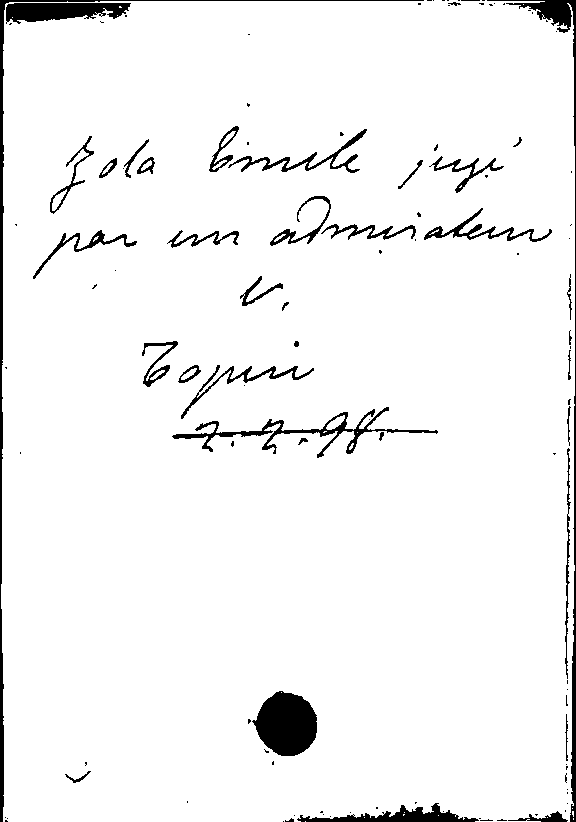 Zola Emile jugé
par un admirateur
V.
Topin
2.2.98.